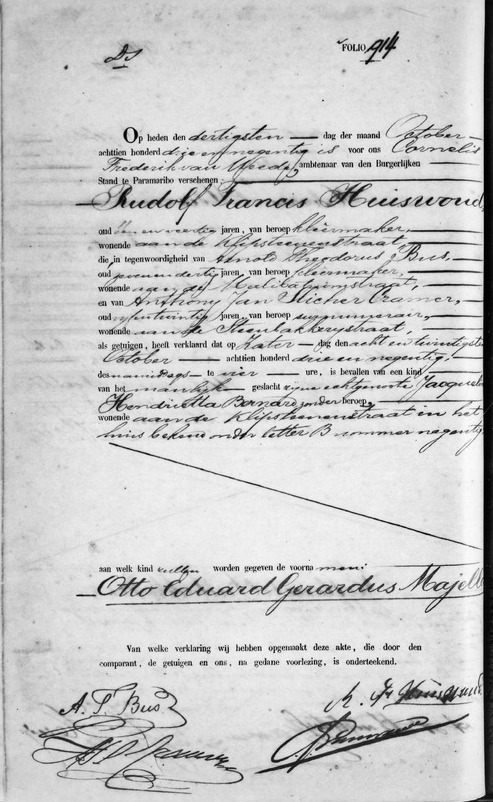 FOLIO 914
Op heden den dertigsten dag der maand October
achttien honderd drie en negentig is voor ons Cornelis
Frederik van ambtenaar van den Burgerlijken
Stand te Paramaribo verschenen:
Rudolf Francis Huiswoud,
oud en veertig jaren, van beroep kleermaker,
wonende aan de Klipsteenenstraat
die in tegenwoordigheid van Arnold Theodorus Bus,
oud dertig jaren, van beroep kleermaker,
wonende aan de straat,
en van Anthony Jan Cramer,
oud twintig jaren, van beroep surnumerair,
wonende aan de Steenbakkerijstraat,
als getuigen, heeft verklaard dat op Zater dag den acht en twintigste
October achttien honderd drie en negentig,
des namiddags te vier ure, is bevallen van een kind
van het manlijk geslacht zijne echtgenote Jacqueli
Henrietta Bernard zonder beroep,
wonende aan de Klipsteenenstraat in het
huis bekend onder letter B nommer negenty
aan welk kind zullen worden gegeven de voorna men:
Otto Eduard Gerardus Majell
Van welke verklaring wij hebben opgemaakt deze akte, die door den
comparant, de getuigen en ons, na gedane voorlezing, is onderteekend.
A. T. Bus
R. F. Huiswoud